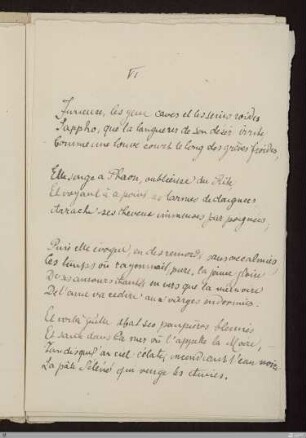 VI
Furieuse, les yeux caves et les seins roides
Sappho, que la langueur de son désir irrite
Comme une louve court le long des grèves froides,
Elle songe à Phaon, oublieuse du Rite,
Et voyant à ce point ses larmes dédaignées
Arrache ses cheveux immenses par poignées;
Puis elle évoque, en des remords sans accalmies
Les temps où rayonnait, pure, la jeune gloire
De ses amours chantés en vers que la mémoire
De l'âme va redire aux vierges endormies.
Et voilà qu'elle abat ses paupières blêmies
Et saute dans la mer où l'appelle la Moire,
Tandis qu'au ciel éclate, incendiant l'eau noire
La pâle Séléné qui venge les Amies.